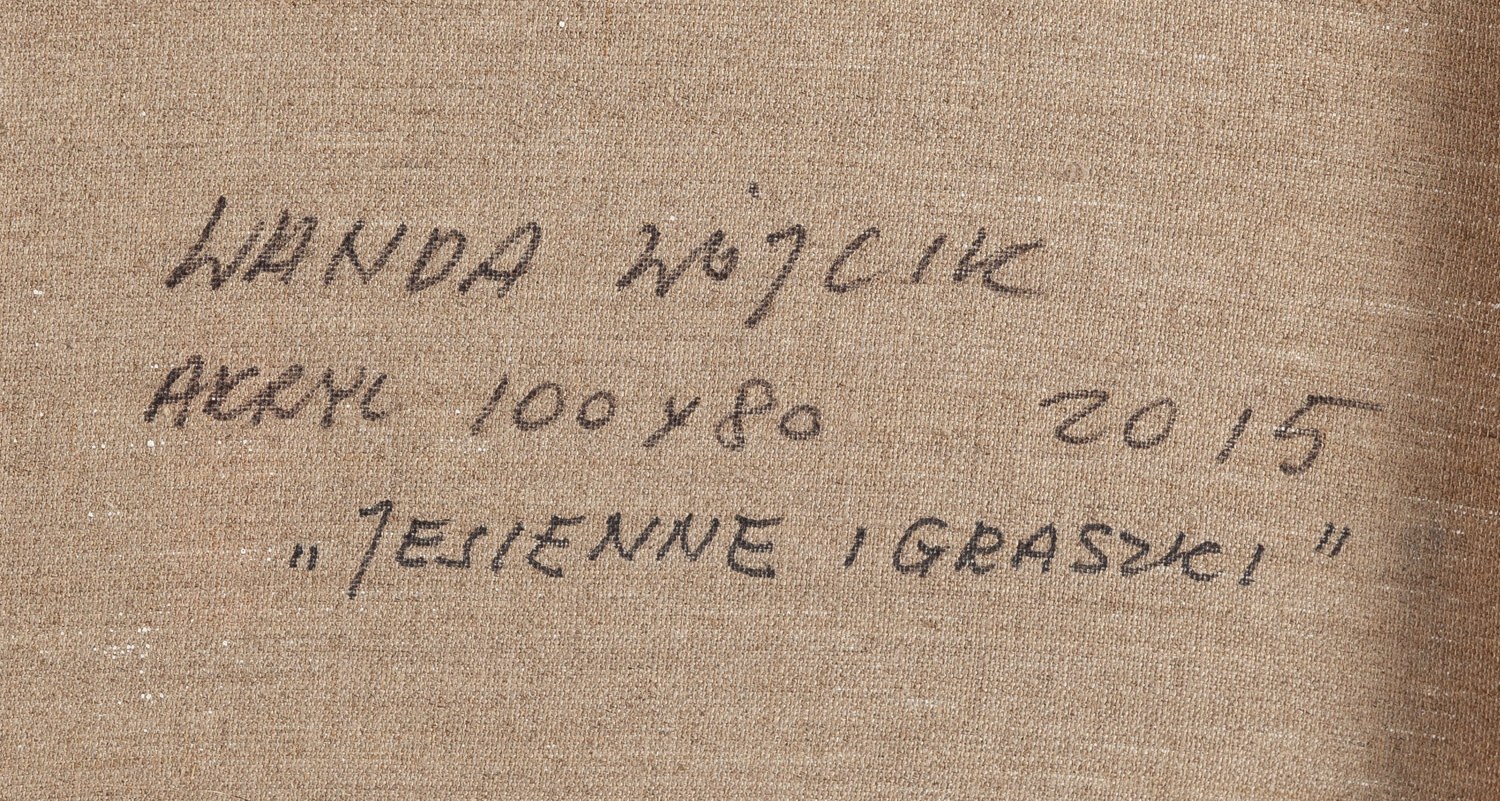 WANDA WÓJCIK
AKRYL 100 x 80 2015
„JESIENNE IGRASZKI"